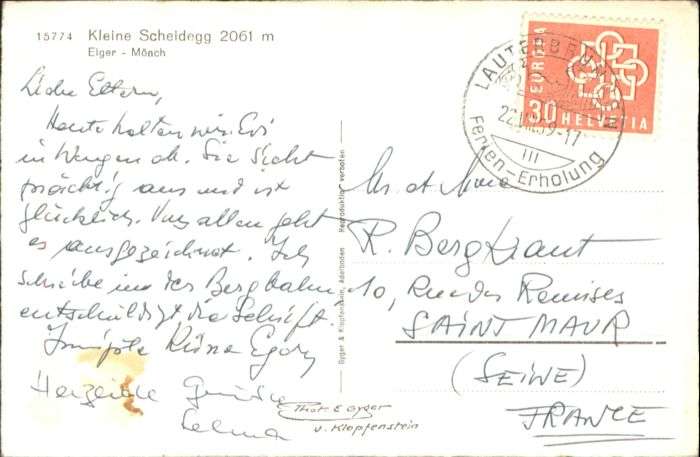 15774 Kleine Scheidegg 2061 m
Eiger - Mönch
Liebe Eltern,
Heute holten wir Evi
in Wengen ab. Sie sieht
prächtig aus und ist
glücklich. Uns allen geht
es ausgezeichnet. Ich
schreibe in der Bergbahn
entschuldigt die Schrift.
Küsse
Herzliche Grüsse
Selma
Gyger & Klopfenstein, Adelboden Reproduktion verboten
Phot. E. Gyger
u. Klopfenstein
EUROPA
30 HELVETIA
LAUTERBRUNNEN
59-17
III
Ferien-Erholung
Mr et Mme
R. Bergkraut
10, Rue des Remises
SAINT MAUR
(SEINE)
FRANCE